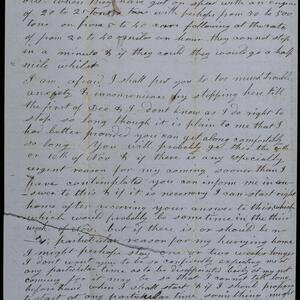 one when they have got up speed with an engine
of 20 to 30 tons & a train with perhaps from 30 to 500
tons on from 5 to 40 cars following at the rate
of from 20 to 40 miles an hour they cannot stop
in a minute & if they could they would go a half
mile whilst
I am afraid I shall put you to too much trouble
anxiety & inconvenience by stopping here till
the first of Dec & I dont know as I do right to
stop so long though it is plain to me that I
had better provided you can get along comfortably
so long. You will probably get this the
or 10th of Nov & if there is any especially
urgent reason for my coming sooner than I
have contemplated you can inform me in an-
swer to this & if it is necessary I can start right
home after receiving your answer to this
which would probably be sometime in the third
week of Nov. but if there is, or should be no
particular reason for my hurrying home
I might perhaps stay one or two weeks longer
I dont want you to be confidently expecting me at
any particular time so as to be disappointed daily by my not
coming for it may be so that I cannot tell
beforehand when I shall start if I should propose
at any particular time something might